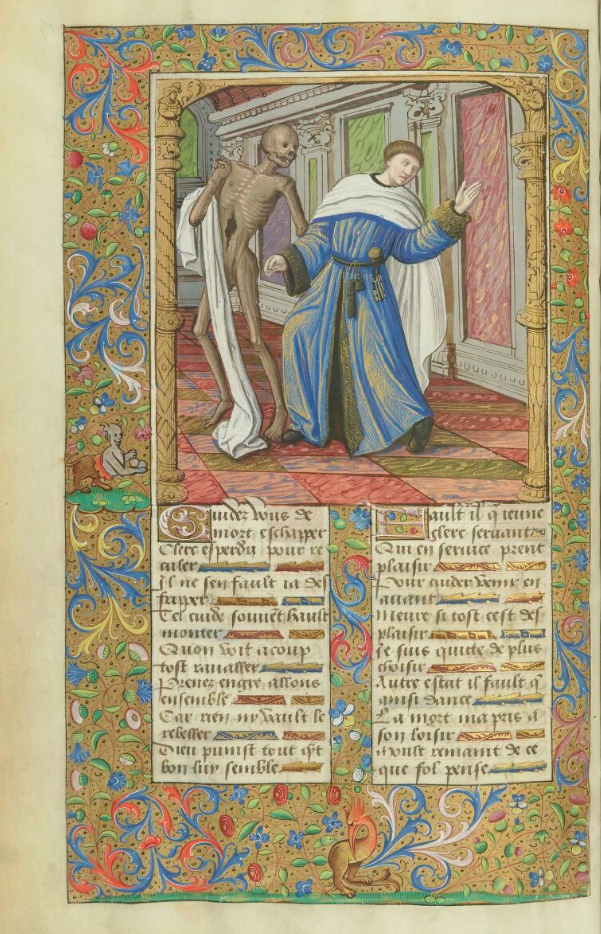 Cuidez vous de
mort eschapper
Clerc esperdu pour re
culer
Il ne sen fault ia des
frapper
Tel cuide souvēt hault
monter
Quon voit acoup
tost ravaller
Prenez engre allons
ensemble
Car rien ny vault le
rebeller
Dieu punist tout q̄t
bon luy semble
Fault il q̄ ieune
clerc servant
Qui en service prent
plaisir
Pour cuider venir en
avant
Meure si tost cest des
plaisir
Je suis quicte de plus
choisir
Autre estat il fault q̄
ainsi dance
La mort ma pris a
son loisir
Moult remaint de ce
que fol pense